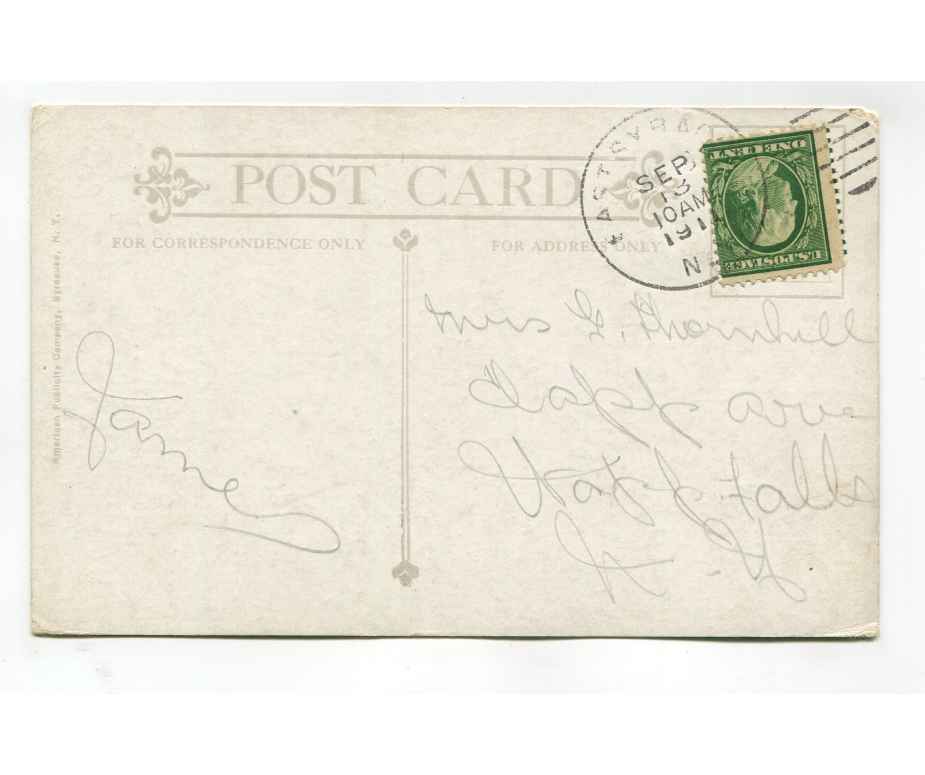 POST CARD
FOR CORRESPONDENCE ONLY
FOR ADDRESS ONLY
American Publicity Company, Syracuse, N. Y.
SEP
13
10AM
191
N
ONE CENT
U.S. POSTAGE
Mrs G. Thornhill
Clapp ave
Wapp Falls
N-Y